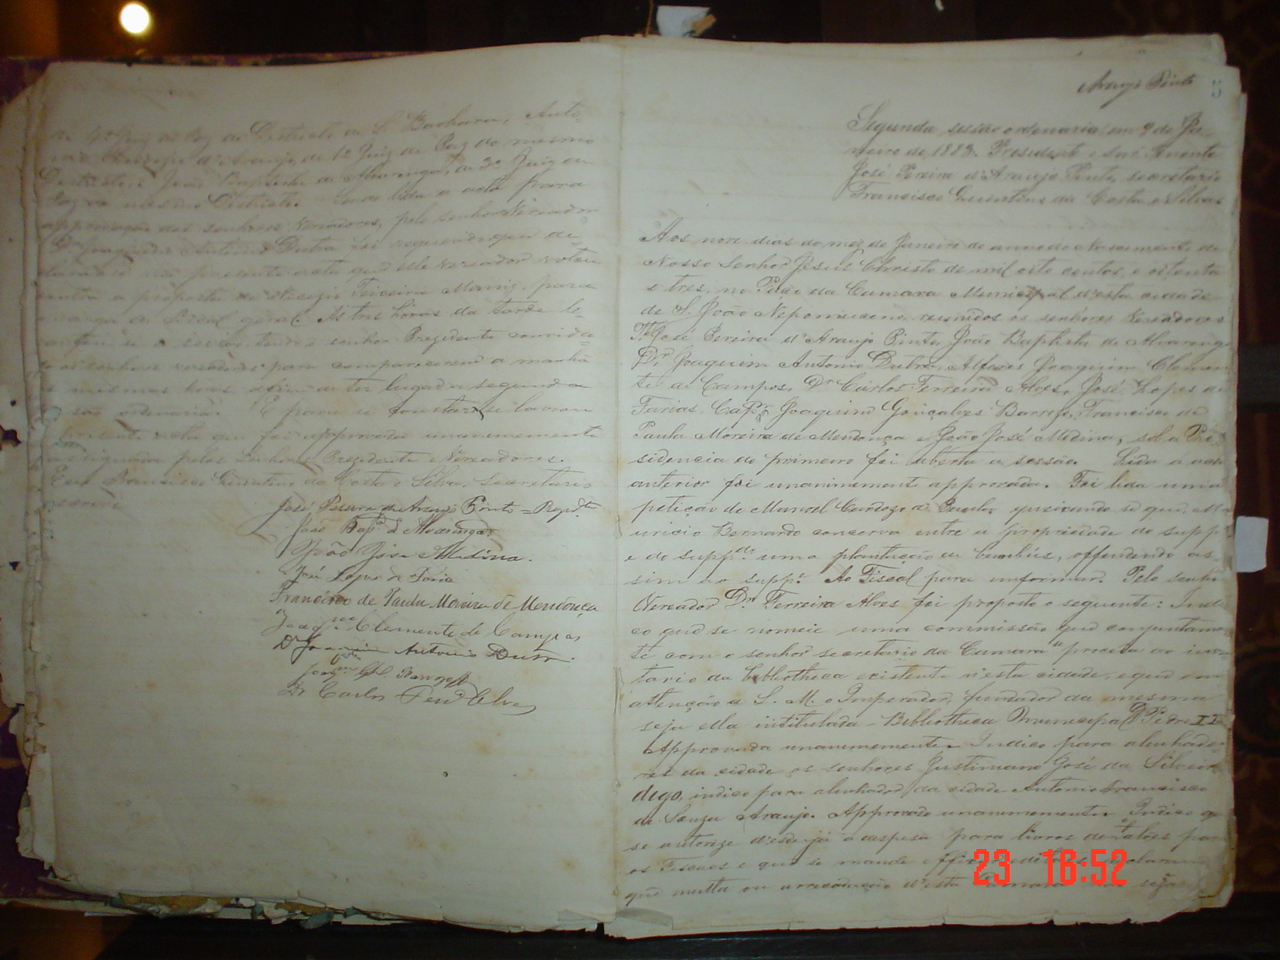 de 4º Juiz de Paz do Districto de S. Barbara, Anto
de Araujo, de 1º Juiz de Paz do mesmo
Districto; João Baptista de Alvarenga, de 3º Juiz de
Paz do mesmo Districto. lida a acta para
approvação dos senhores Vereadores, pelo senhor Vereador
Dr Joaquim Antonio Dutra foi requerido que de
na presente acta que elle Vereador votou
contra a proposta de Teixeira para
o cargo de Fiscal geral. As tres horas da tarde le
a sessão, tendo o senhor Presidente convida
os senhores vereadores para comparecerem a manhã
as mesmas horas afim de ter lugar a segunda
sessão ordinaria. E para constar se lavrou
a presente acta que foi approvada unanimemente
assignada pelos senhores Presidente e Vereadores.
Eu Francisco Quintino da Costa e Silva, Secretario
escrevi
José Pereira de Araujo Pinto = Presidte
João Bapta d'Alvarenga
João José Medina.
José Lopes de Faria
Francisco de Paula Moreira de Mendonça
Joaqm Clemente de Campos
Dr Joaquim Antonio Dutra.
Joaqm Glz
Dr Carlos Ferra Alves
Araujo Pinto 5
Segunda sessão ordenaria em 9 de Ja-
neiro de 1883. Presidente o snr. Tenente
José Pereira d'Araujo Pinto, secretario
Francisco Quintino da Costa e Silva
Aos nove dias do mez de Janeiro do anno do Nascimento de
Nosso Senhor Jesus Christo de mil oito centos e oitenta
e tres, no Paço da Camara Municipal d'esta cidade
de S. João Nepomuceno reunidos os senhores Vereadores
Te José Pereira d'Araujo Pinto, João Baptista de Alvarenga
Dr Joaquim Antonio Dutra, Alferes Joaquim Clemen
te de Campos, Dr Carlos Ferreira Alves, José Lopes de
Faria, Capm Joaquim Gonçalves Francisco de
Paula Moreira de Mendonça e João José Medina, sob a Pre
sidencia do primeiro foi aberta a sessão. Lida a acta
anterior foi unanimemente approvada. Foi lida uma
petição de Manoel Cardozo de Paula queixando-se que Ma
uricio Bernardo conserva entre a propriedade do suppe
e do suppdo uma plantação de bambús, offendendo as
sim ao suppe. Ao Fiscal para informar. Pelo senhor
Vereador Dr Ferreira Alves foi proposto o seguinte: Indi
co que se nomeie uma commissão que conjuntamen
te com o senhor secretario da Camara proceda ao inven
tario da bibliotheca existente n'esta cidade, e que em
attenção a S. M. o Imperador, fundador da mesma
seja ella intitulada - Bibliotheca Municipal D. Pedro II
Approvada unanimemente. Indico para alinhado
res da cidade os senhores Justiniano José da Silveira
digo, indico para alinhador da cidade Antonio Francisco
de Souza Araujo. Approvado unanimemente. Indico que
se autorize desde já a despesa para livros de talões para
os Fiscaes e que se mande
que multa ou arrecadação d'esta Camara seja
23 16:52